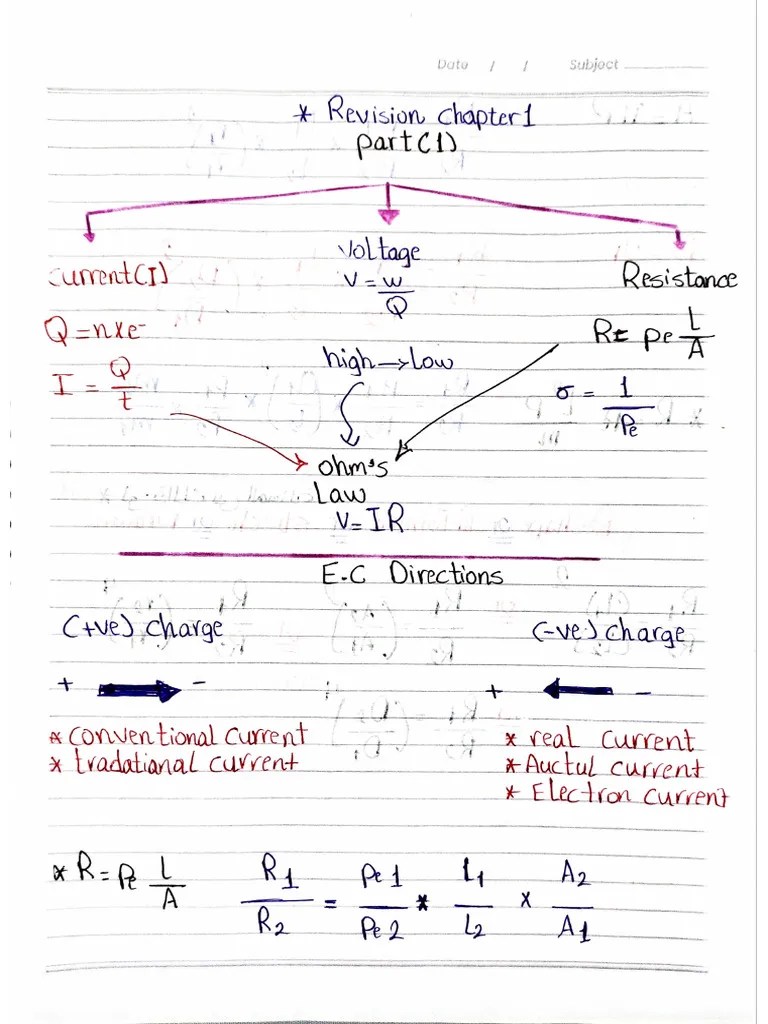 Date / / Subject
* Revision chapter 1
part (1)
current (I)
Q = n x e-
I = Q/t
voltage
V = w/Q
high → low
Resistance
R = ρe L/A
σ = 1/ρe
ohm's
Law
V = IR
E.C Directions
(+ve) charge
+ → -
* conventional current
* tradational current
(-ve) charge
+ ← -
* real current
* Auctul current
* Electron current
* R = ρe L/A
R1/R2 = ρe1/ρe2 * L1/L2 x A2/A1